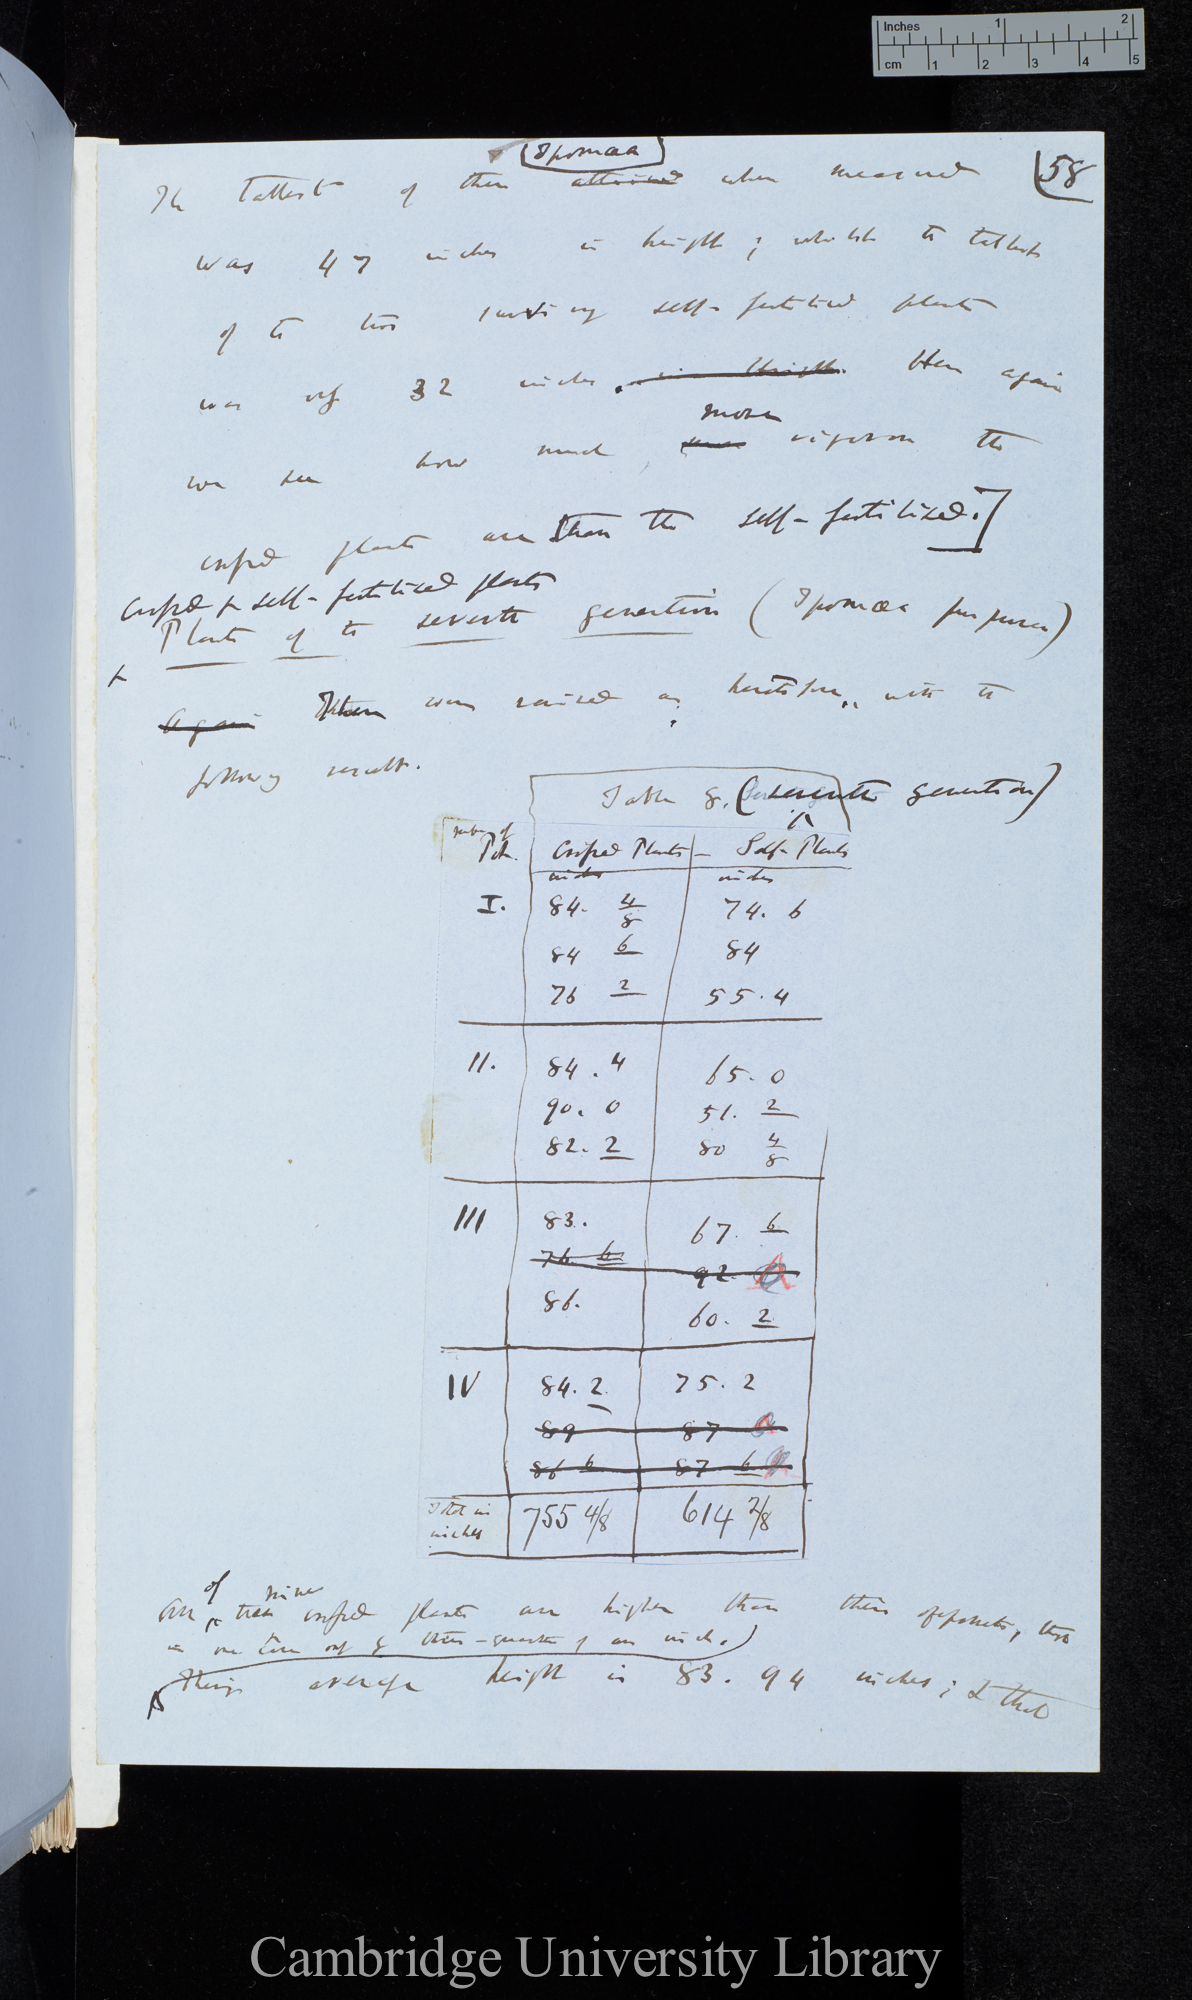 Inches 1 2
cm 1 2 3 4 5
Ipomœa
58
The tallest of them attained when measured
was 47 inches in height; whilst the tallest
of the two surviving self-fertilised plants
was only 32 inches. in height. Here again
more
we see how much vigorous the
crossed plants are than the self-fertilised.]
Crossed & self-fertilised plants
Plants of the seventh generation (Ipomœa purpurea)
Again These were raised as heretofore, with the
following result.
Table 8. (seventh generation)
number of Pot. Crossed Plants — Self- Plants
inches inches
I. 84. 4/8 74. 6
84 6 84
76 2 55. 4
II. 84. 4 65. 0
90. 0 51. 2
82. 2 80 4/8
III 83. 67. 6
76. 6 92.
86. 60. 2
IV 84. 2 75. 2
89 87
86 6 87 6
Total in inches 755 4/8 614 2/8
of nine
All these crossed plants are higher than their opponents, tho
in one case only by three-quarters of an inch.)
Their average height is 83. 94 inches; & that
Cambridge University Library